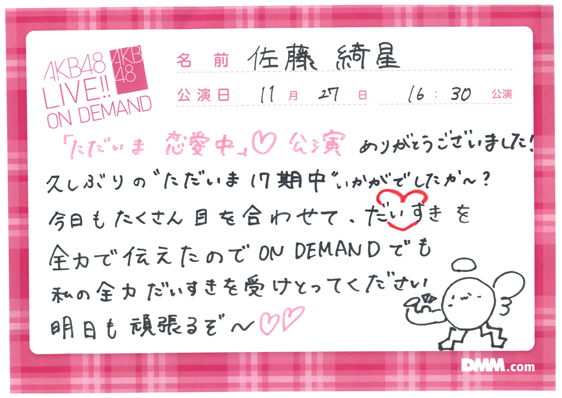 AKB48
LIVE!!
ON DEMAND
AKB
48
名前 佐藤 綺星
公演日 11月 27日 16:30 公演
「ただいま 恋愛中」♡ 公演 ありがとうございました!
久しぶりの"ただいま17期中"いかがでしたか〜?
今日もたくさん目を合わせて、だいすきを
全力で伝えたのでON DEMANDでも
私の全力だいすきを受けとってください
明日も頑張るぞ〜♡♡
DMM.com